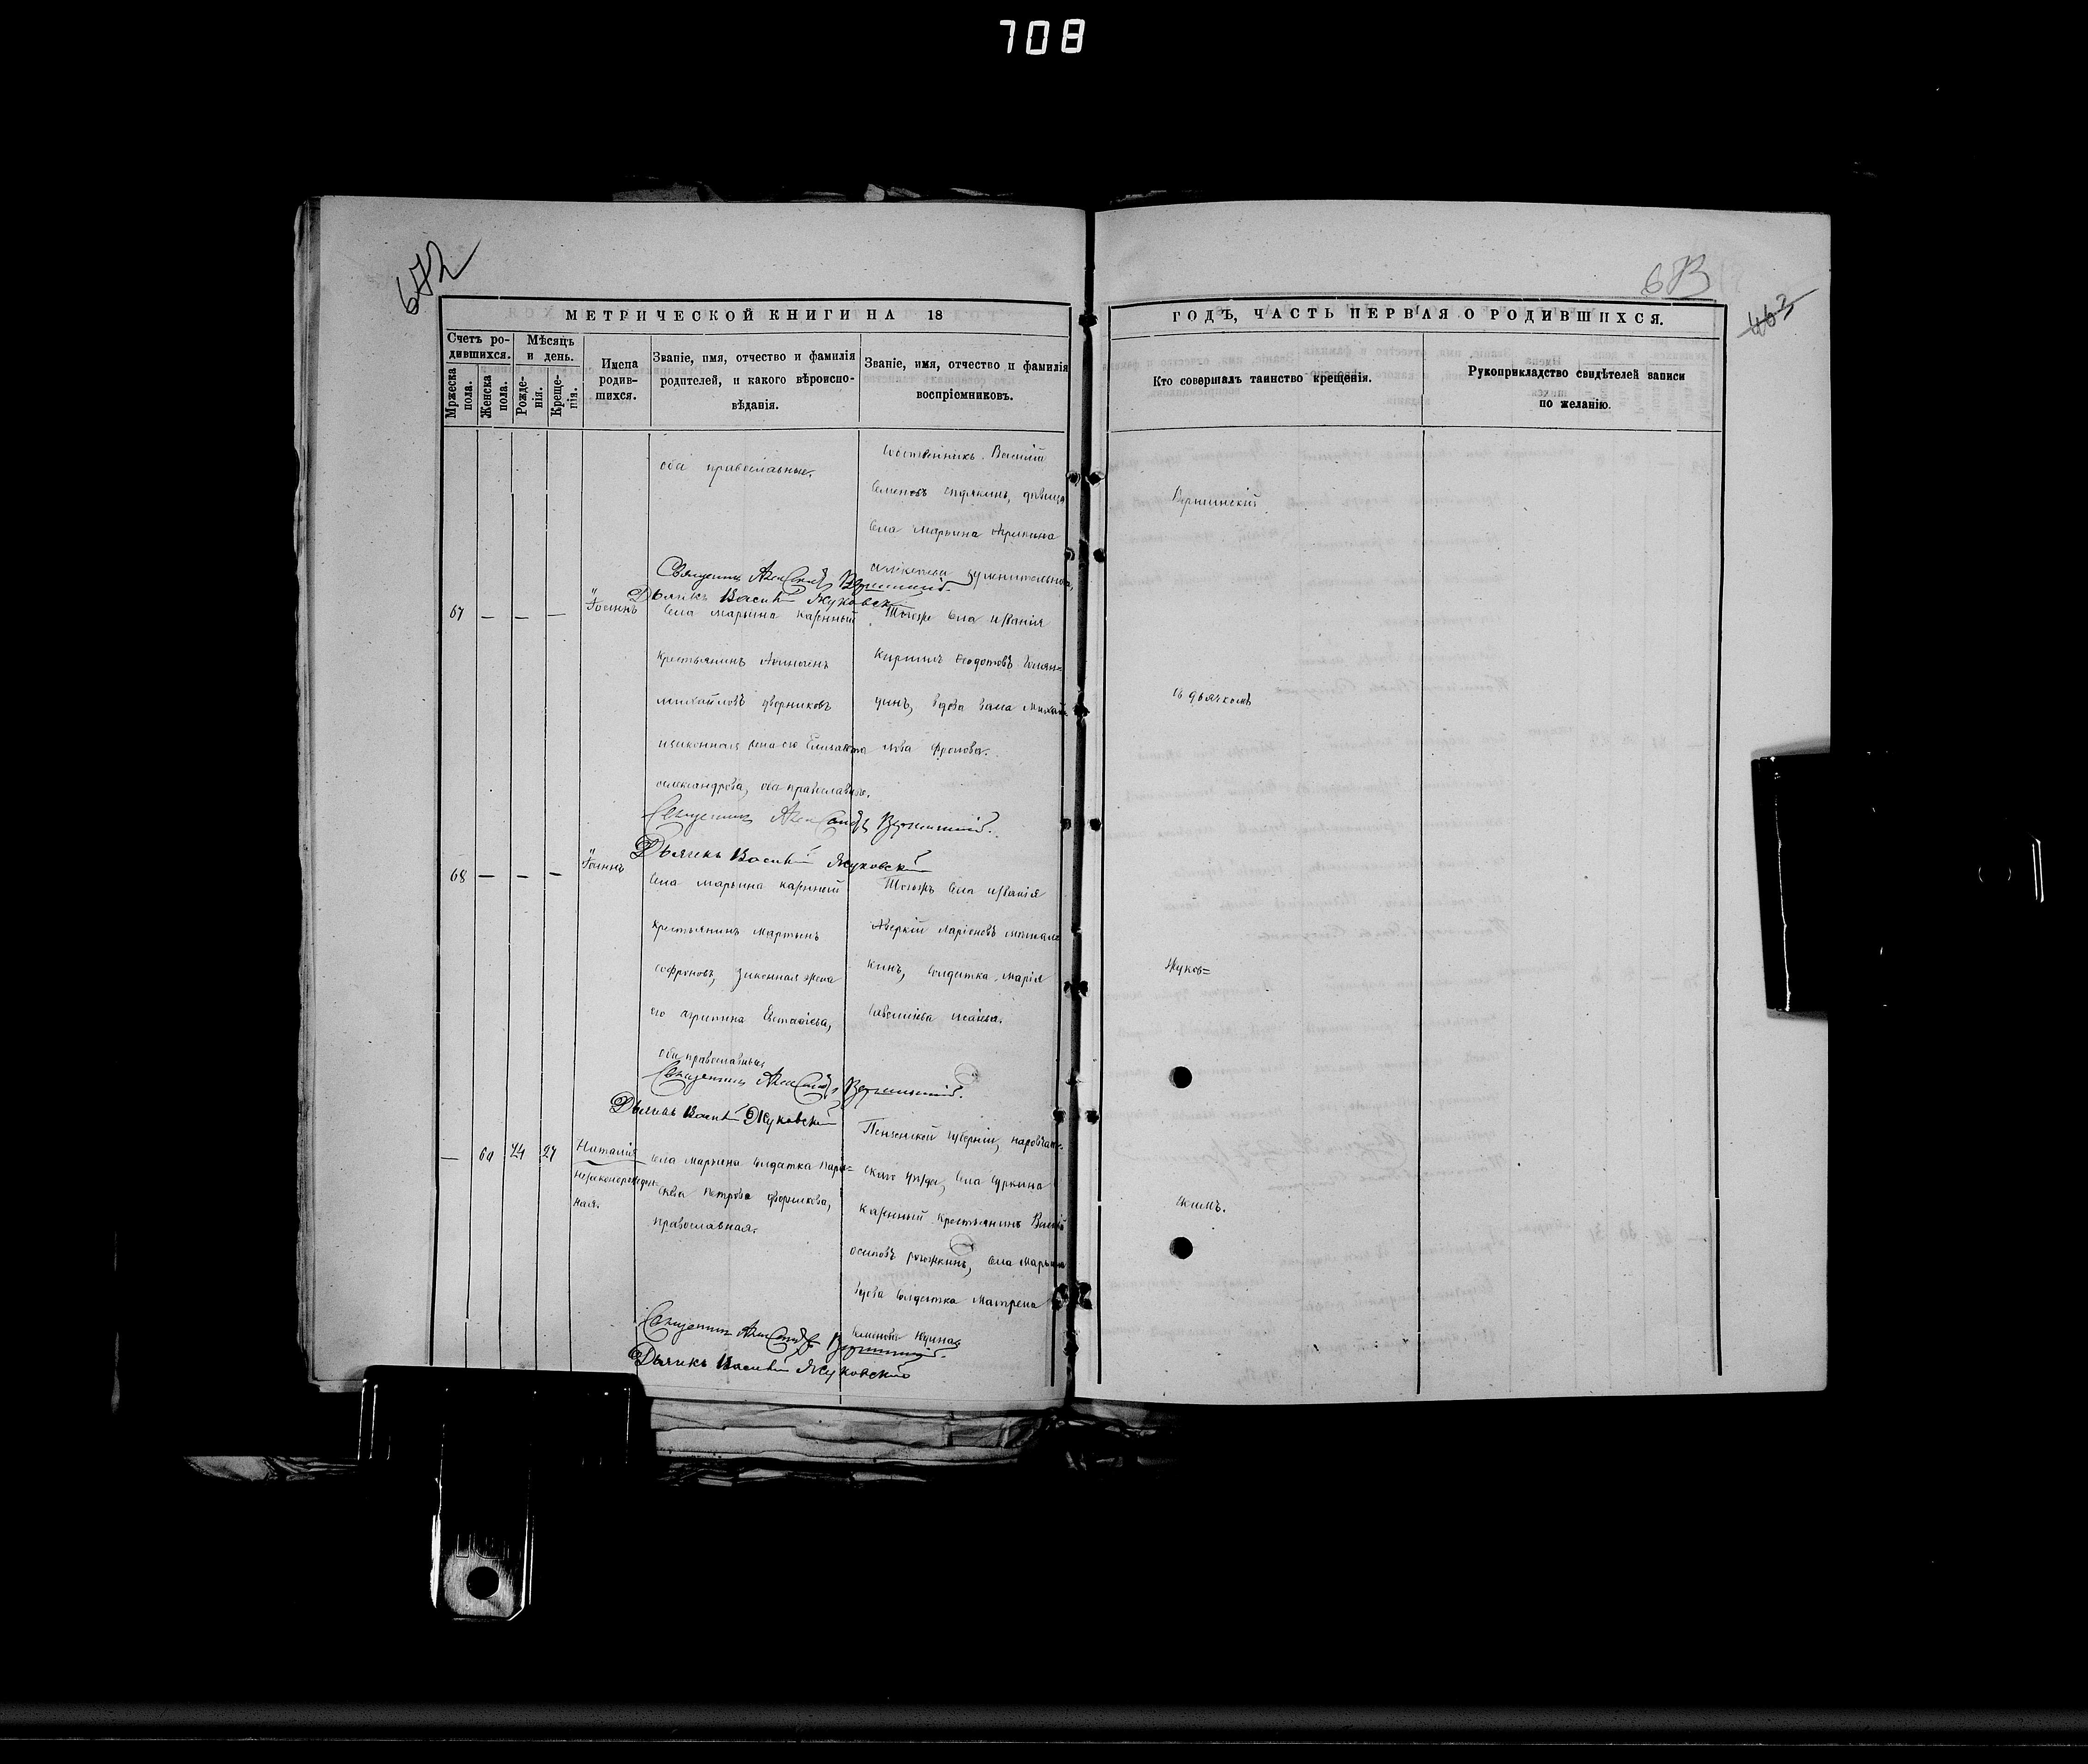 708
672
МЕТРИЧЕСКОЙ КНИГИ НА 18
Счетъ ро-
дившихся.
Мѣсяцъ
и день.
Мржеска
пола.
Женска
пола.
Рожде-
нія.
Креще-
нія.
Имена
родив-
шихся.
Званіе, имя, отчество и фамилія
родителей, и какого вѣроиспо-
вѣданія.
Званіе, имя, отчество и фамилія
воспріемниковъ.
оба православные.
Василій
Семеновъ девица
села Марьина
Священникъ Александръ
Дьячекъ Василій Жуковскій
67 — — —
Іоаннъ
села Марьина казенный
крестьянинъ
Михайловъ Дворниковъ
законная жена его Елисавета
Александрова, оба православные.
Тогоже села
Кириллъ Феодотовъ
динъ, вдова Михай
лова Фролова.
Священникъ Александръ
Дьячекъ Василій Жуковскій
68 — — —
Іоаннъ
села Марьина казенный
крестьянинъ Мартинъ
Софроновъ, законная жена
его Агрипина Евстафіева,
оба православные
Тогожъ села
Аверкій Ларіоновъ
кинъ, солдатка Марія
Исаева.
Священникъ Александръ
Дьячекъ Василій Жуковскій
— 60 24 27
Наталія
незаконорожден
ная.
села Марьина солдатка Пара=
скева Петрова Дворникова,
православная.
Пензенской губерніи, Наровчат-
скаго уезда, села Суркина
казенный крестьянинъ Василій
Осиповъ Рогожкинъ, села Марьина
вдова солдатка Матрена
Семенова
Священникъ Александръ
Дьячекъ Василій Жуковскій
673
463
ГОДЪ, ЧАСТЬ ПЕРВАЯ О РОДИВШИХСЯ.
Кто совершалъ таинство крещенія.
Рукоприкладство свидѣтелей записи
по желанію.
съ дьячкомъ
Жуков=
скимъ.